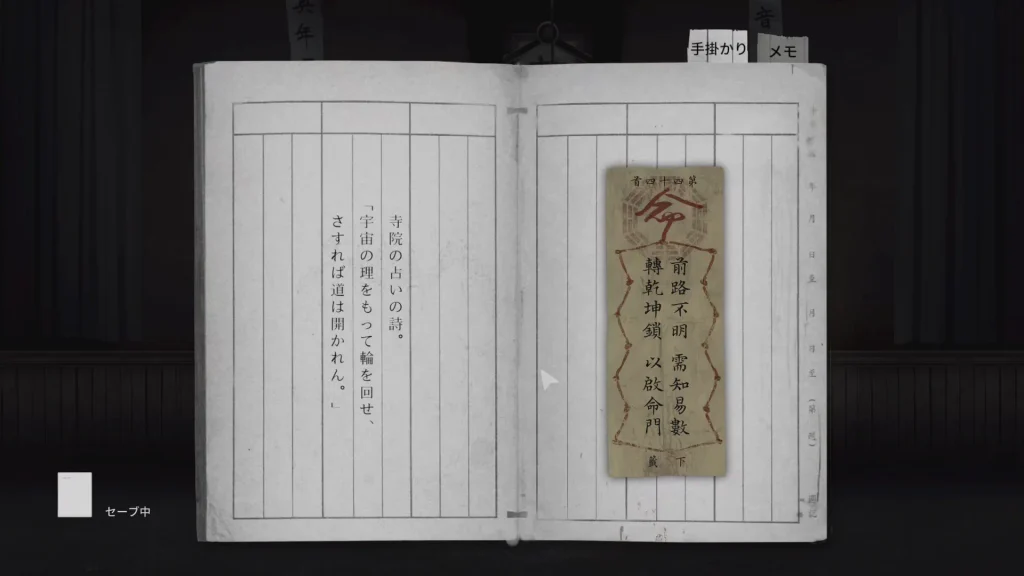 手掛かり
メモ
寺院の占いの詩。
「宇宙の理をもって輪を回せ、
さすれば道は開かれん。」
第四十四首
命
前路不明 需知易數
轉乾坤鎖 以啟命門
下籤
セーブ中